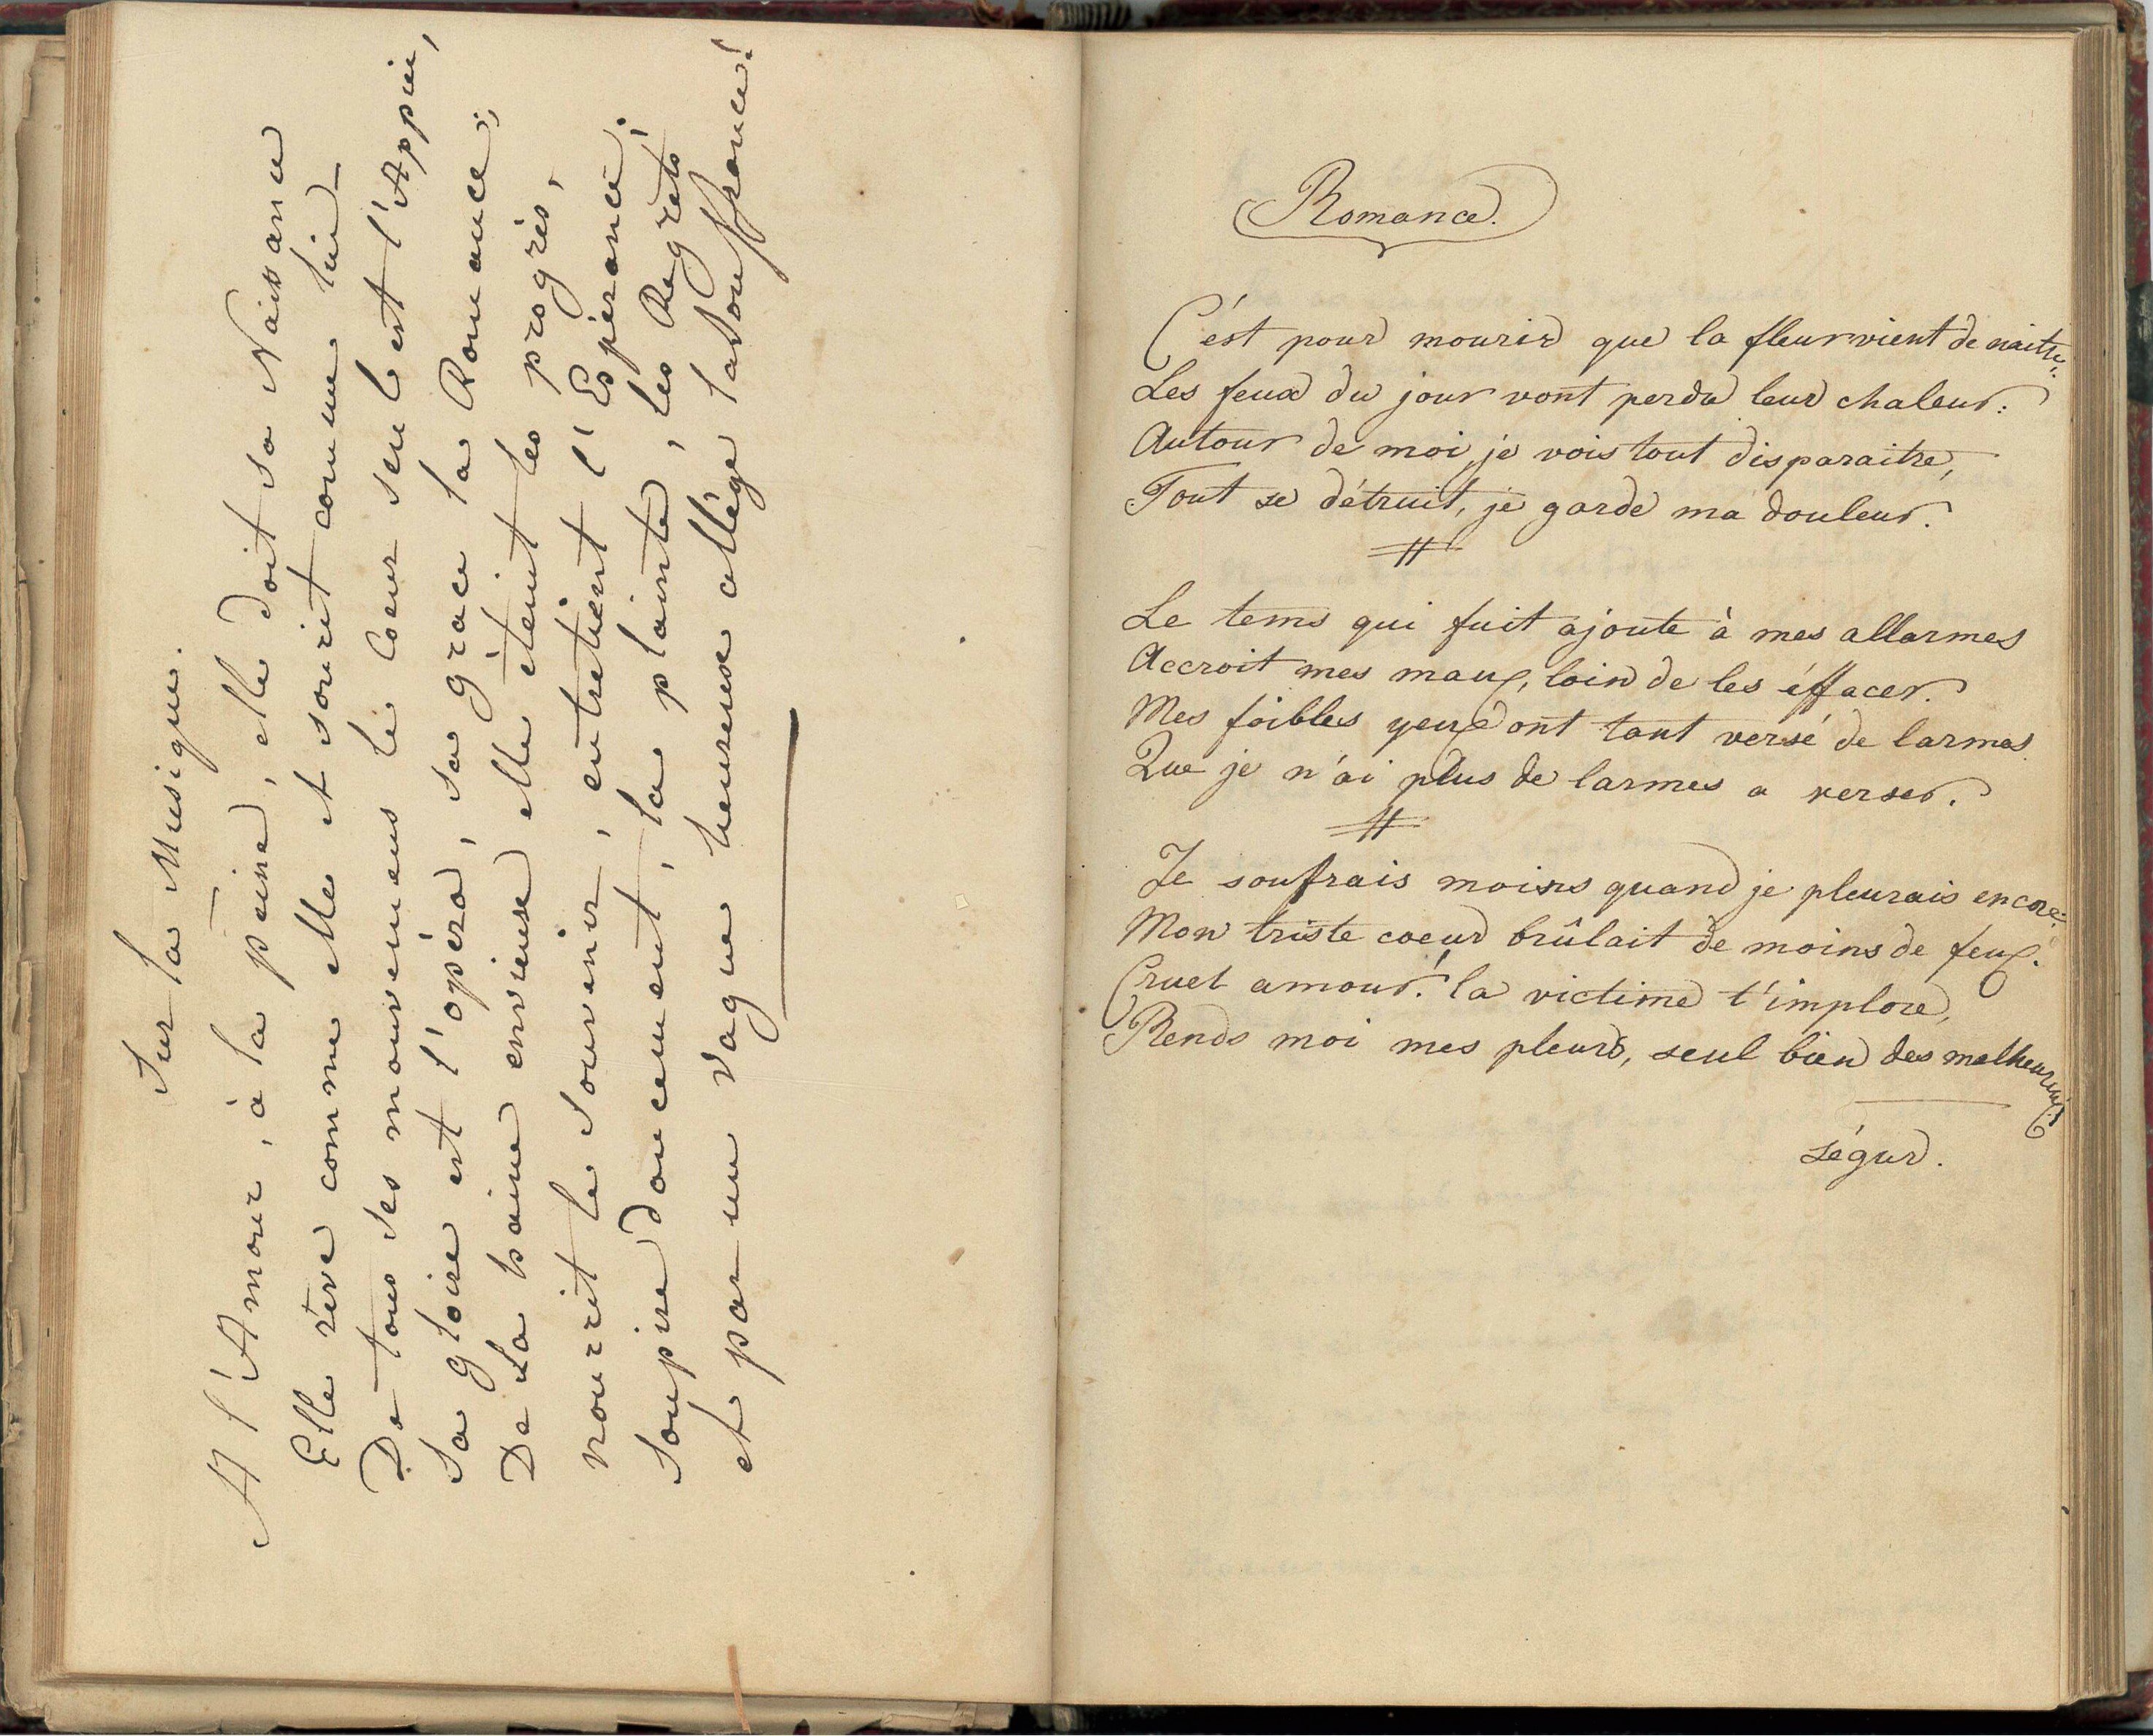 Sur la Musique.
A l'Amour, à la peine, elle doit sa Naissance
Elle rêve comme elle et sourit comme lui_
De tous ses mouvemens le Coeur seul est l'Appui,
Sa gloire est l'opéra, sa grace la Romance;
De la haine envieuse elle éteint les progrès,
nourrit le Souvenir, entretient l'Espérance.
Soupire doucement, la plainte, les Regrets
et par un vague heureux allége la Souffrance!
Romance.
C'est pour mourir que la fleur vient de naitre;
Les feux du jour vont perdre leur chaleur:
Autour de moi, je vois tout disparaitre,
Tout se détruit, je garde ma douleur.
Le tems qui fuit ajoute à mes allarmes
Accroit mes maux, loin de les éffacer.
Mes foibles yeux ont tant versé de larmes
Que je n'ai plus de larmes a verser.
Je soufrais moins quand je pleurais encore:
Mon triste coeur brûlait de moins de feux.
Cruel amour! la victime t'implore,
Rends moi mes pleurs, seul bien des malheureux!
Ségur.